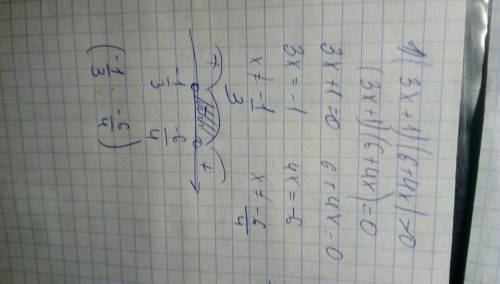 1) (3x+1)(6+4x)>0
(3x+1)(6+4x)=0
3x+1=0 6+4x=0
3x=-1 4x=-6
x≠-1/3 x≠-6/4
+ +
-1/3 -6/4
(-1/3; -6/4)